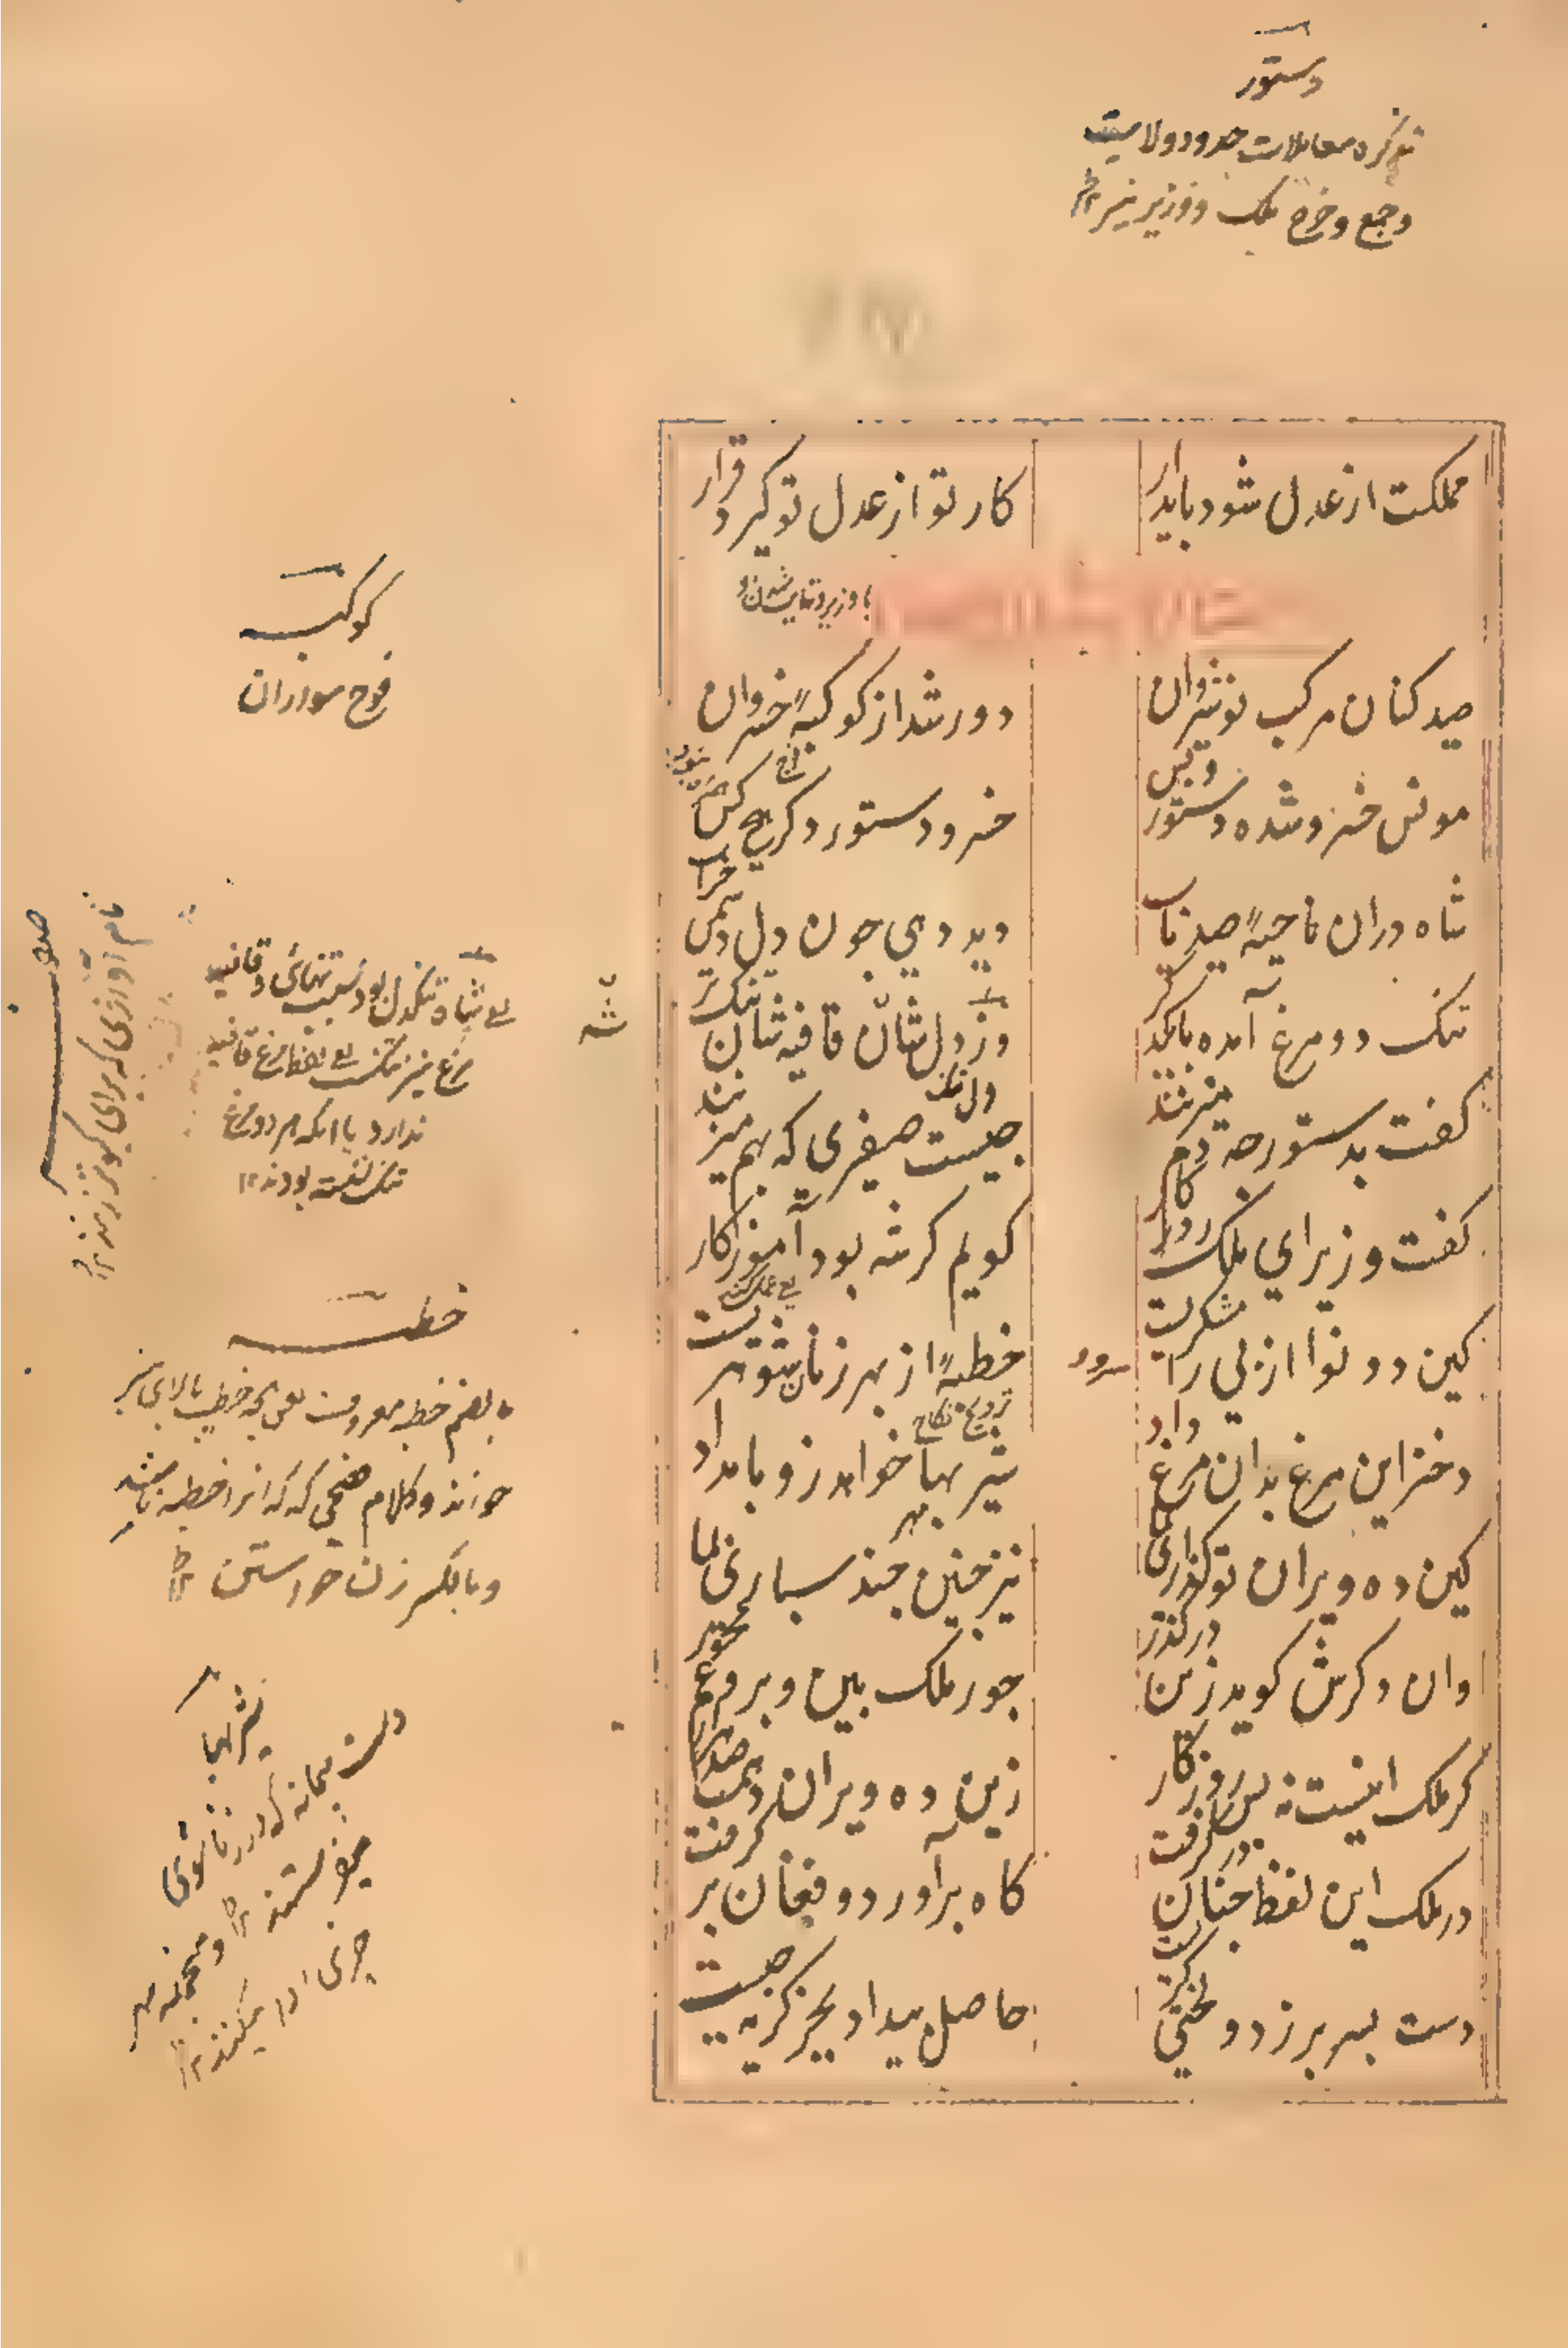 دستور
تذکره معاملات حدود ولایت
و جمع و خرج ملک و وزیر نیز ۱۲
مملکت از عدل شود بایدار
کار تو از عدل تو کیرد قرار
با وزیر و
صید کنان مرکب نوشیروان
دور شد از کوکبهٔ خسروان
مونس خسرو شده دستور و بس
خسرو و دستور و دکر هیچ کس
شاه دران ناحیهٔ صید یاب
دید دهی جون دل دشمن خراب
تنک دو مرغ آمده با یکدکر
وز دل شان قافیه شان تنکتر
کفت بدستور جه دم میزنند
جیست صفیری که بهم میزنند
کفت وزیر ای ملک روزکار
کویم کر شه بود آموزکار
کین دو نوا از پی رامشکریست
خطبهٔ از بهر زناشوهریست
دختر این مرغ بدان مرغ داد
شیر بها خواهد ازو بامداد
کین ده ویران تو کذاری بما
نیز جنین جند سباری بما
وان دکرش کوید ازین درکذر
جور ملک بین و برو غم مخور
کر ملک اینست نه بس روزکار
زین ده ویران دهمت صد هزار
در ملک این لفظ جنان در کرفت
کاه برآورد و فغان بر کرفت
دست بسر بر زد و لختی کریست
حاصل بیداد بجز کریه جیست
سرود
کوکب
فوج سواران
یعنی شاه تنکدل بود بسبب تنهائی و قافیه
مرغ نیز تنک یعنی لفظ مرغ قافیه
ندارد یا آنکه هر دو مرغ
تنک نشسته بودند ۱۲
نام آوازی که برای کبوتر زنند ۱۲
خطبه
بالضم خطبه معروف یعنی انچه خطیب بالای منبر
خواند و کلام فصیحی که انرا خطبه نامند
و بالکسر زن خواستن ۱۲
شیربها